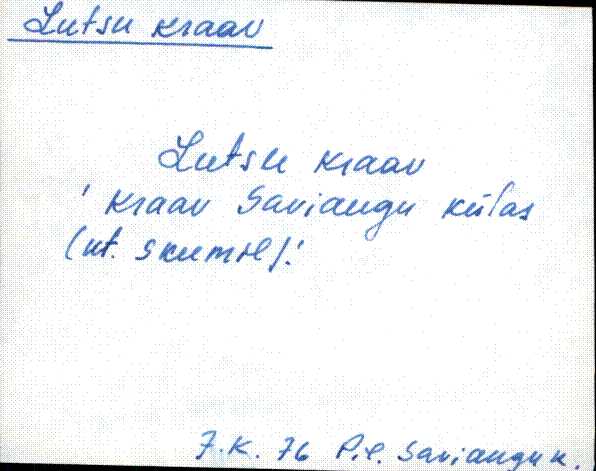 Lutsu kraav
Lutsu kraav
' kraav Saviaugu külas
(vt. skeemil)!
J.K. 76 P.-l. Saviaugu k.